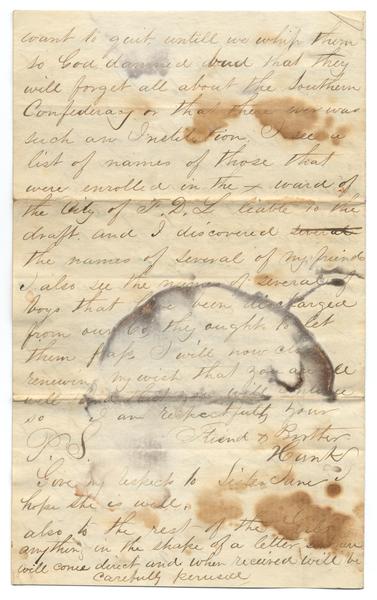 want to quit untill we whip them
so God damned bad that they
will forget all about the Southern
Confederacy or that there ever was
such an Institution. I see a
list of names of those that
were enrolled in the ward of
the City of F. D. L. liable to the
draft. and I discovered several
the names of several of my friends
I also see the names of several of
boys that have been discharged
from our Co they ought to let
them I will now close
renewing my wish that you are
will
so I am respectfully your
Friend & Brother
Hank
P.S.
Give my respects to Sister Jane I
hope she is well.
also to the rest of the
anything in the shape of a letter
will come direct and when received will be
carefully perused